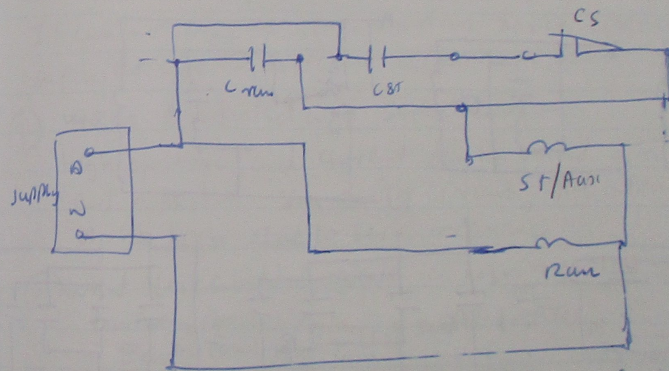 CS
Crun
CST
supply
N
ST/Aux
Run